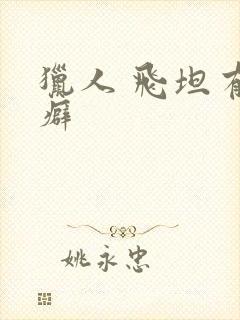 獵人 飛坦有
癖
姚永忠